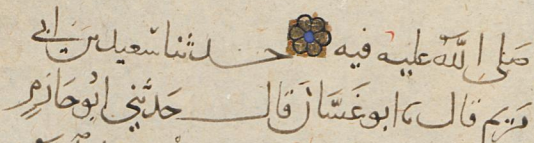 صلى الله عليه فيه حدثنا سعيد بن ابي
مريم قال ثنا ابو غسان قال حدثني ابو حازم